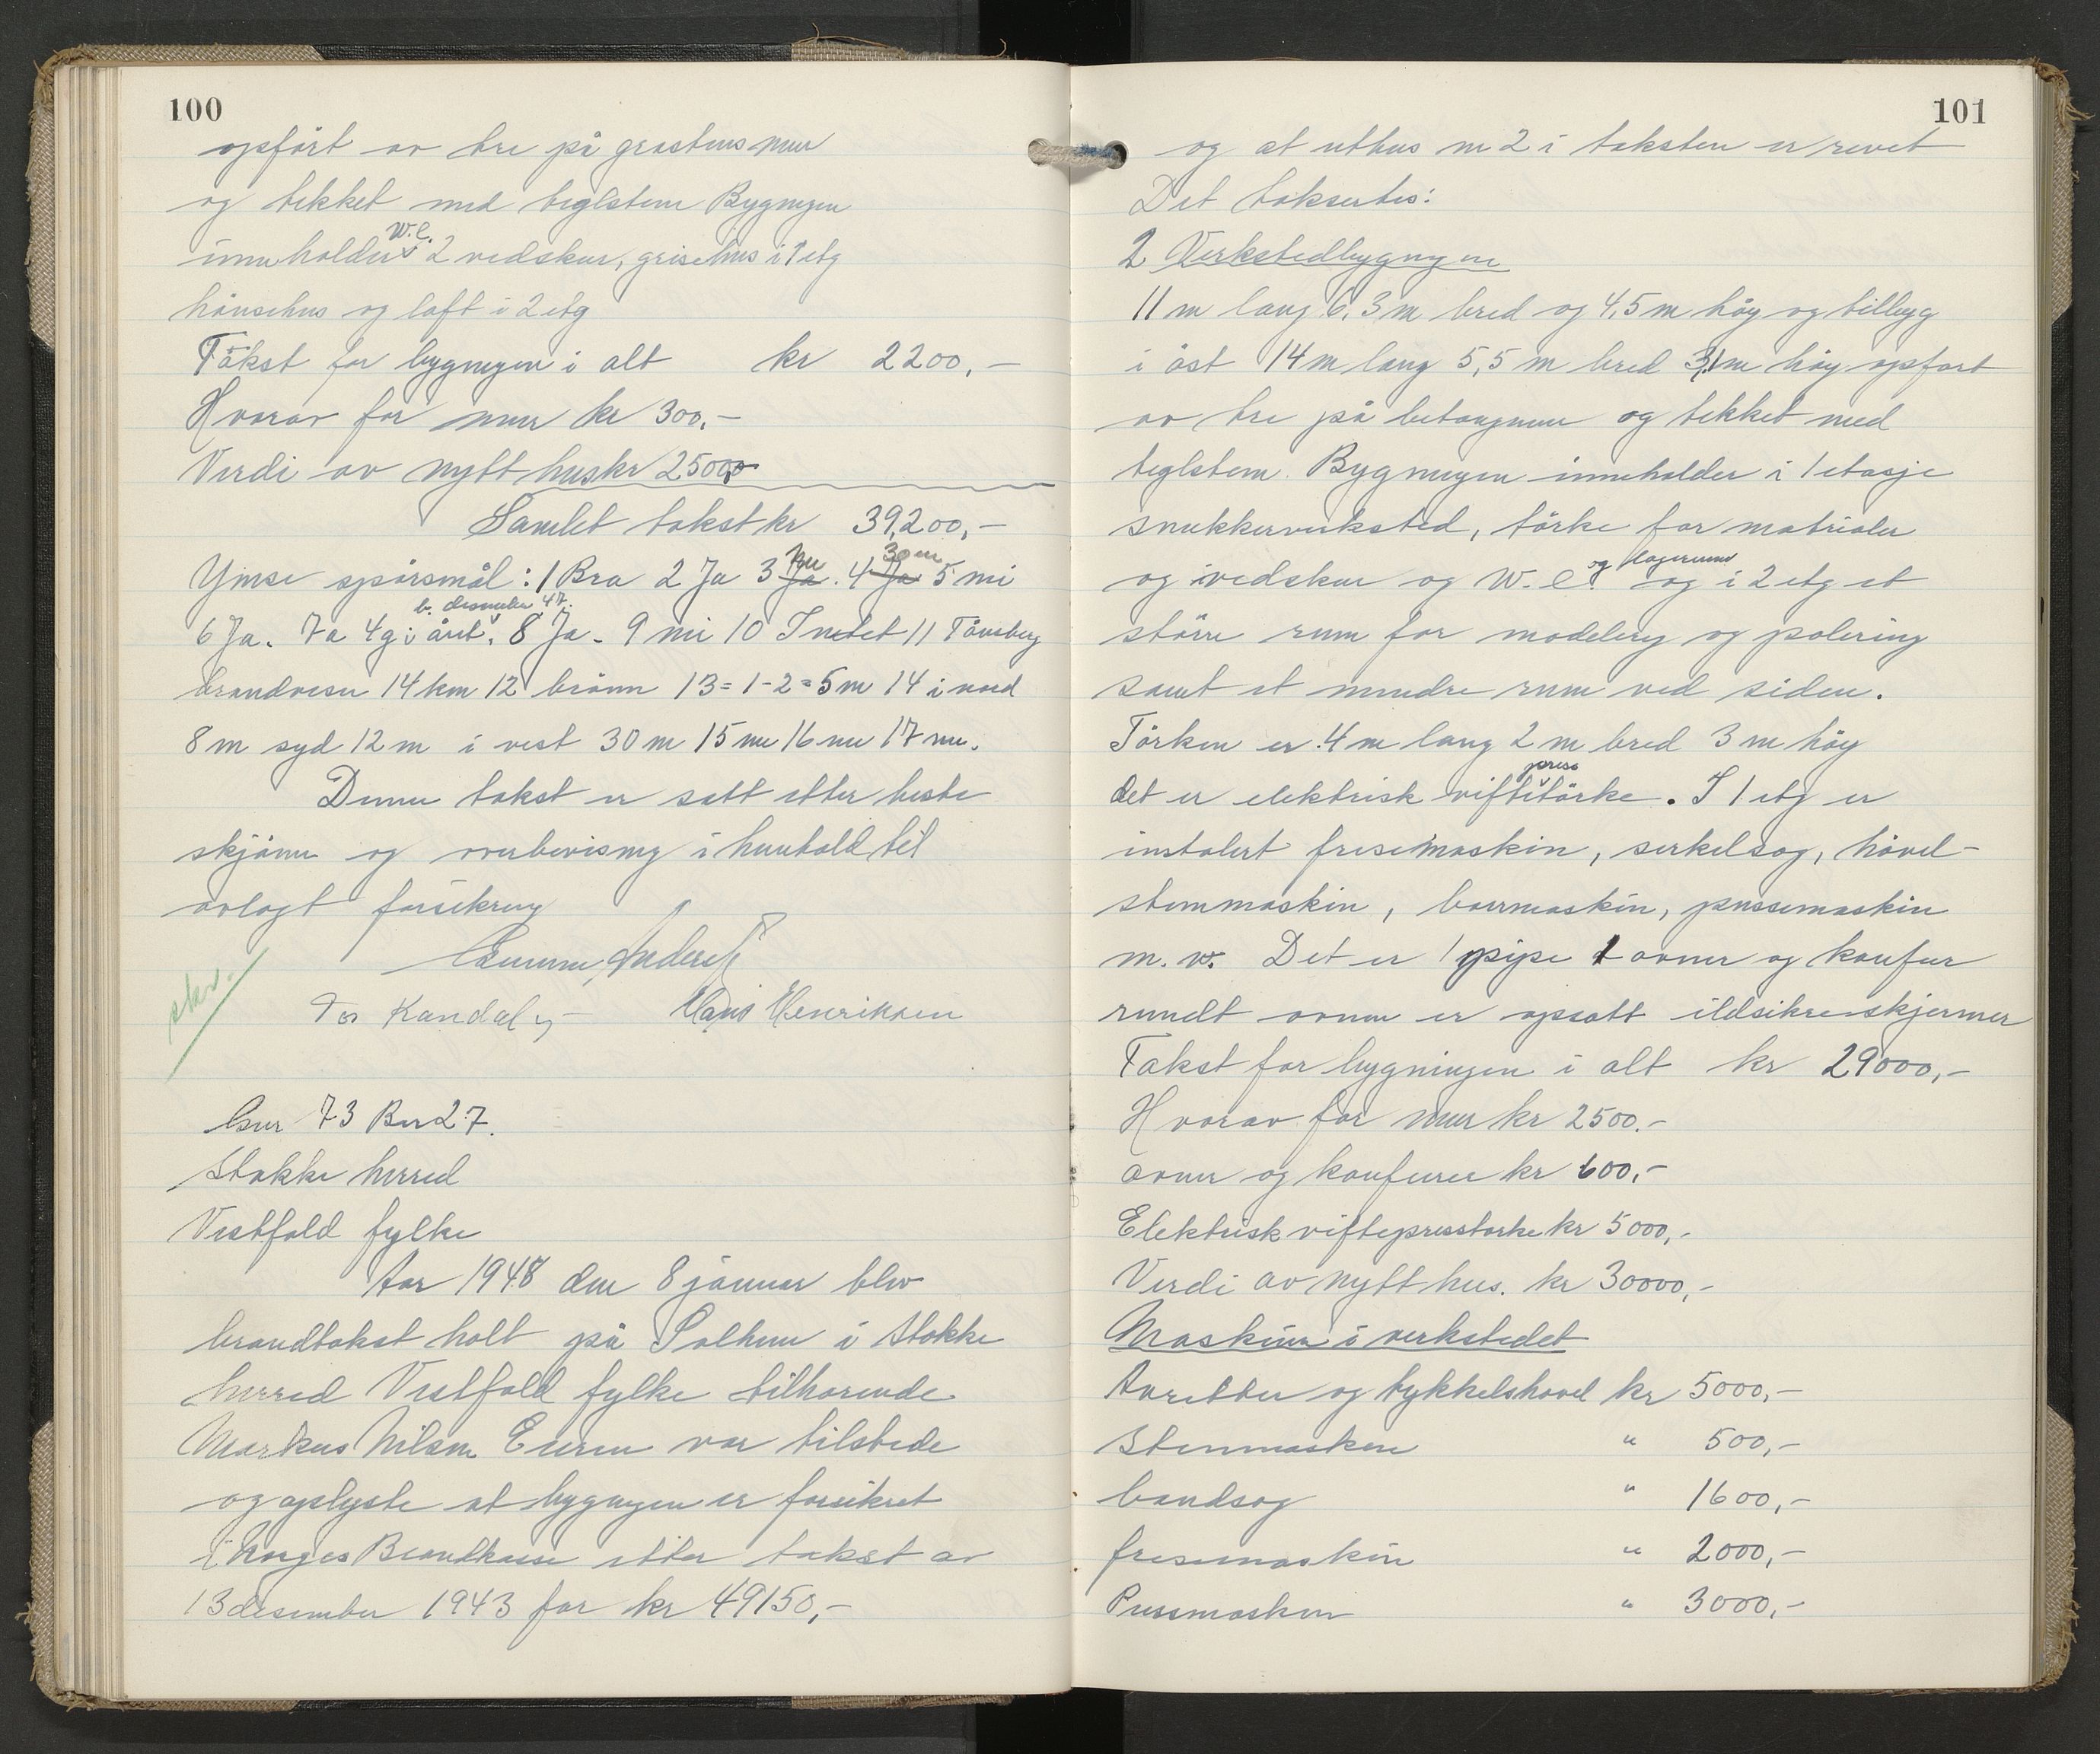 100
opført av tre på grastens mur
og tekket med teglstene Bygningen
W.C.
inneholder 2 vedskur, grisehus i 1 etg
hønsehus og loft i 2 etg
Takst for bygningen i alt kr 2200,-
Hvorav for mur kr 300,-
Verdi av nytt hus kr 2500,-
Samlet takst kr 39,200,-
nei 30 m
Ymse spørsmål: 1 Bra 2 Ja 3 Ja. 4 Ja 5 nei
b. desember 47.
6 Ja. 7a 4g i året. 8 Ja. 9 nei 10 Intet 11 Tønsberg
brandvesen 14 km 12 brønn 13 = 1-2 = 5 m 14 i nord
8 m syd 12 m i vest 30 m 15 nei 16 nei 17 nei.
Denne takst er satt etter beste
skjønn og overbevisning i henhold til
avlagt forsikring
Anders
Tor Kandal Hans Henriksen
skr.
Gnr 73 Bnr 27.
Stokke herred
Vestfold fylke
Aar 1948 den 8 januar blev
brandtakst holt på Solheim i Stokke
herred Vestfold fylke tilhørende
Markus Nilsen Eieren var tilstede
og oplyste at bygningen er forsikret
i Norges Brandkasse etter takst av
13 desember 1943 for kr 49150,-
101
og at uthus m 2 i taksten er revet
Det taksertes:
2 Verkstedbygningen
11 m lang 6,3 m bred og 4,5 m høy og tilbyg
i øst 14 m lang 5,5 m bred 3,1 m høy opført
av tre på betongmur og tekket med
teglsten. Bygningen inneholder i 1 etasje
snekkerverksted, tørke for matrialer
og lagerum
og ivedskur og W.C. og i 2 etg et
større rum for modelering og polering
samt et mindre rum ved siden.
Tørken er 4 m lang 2 m bred 3 m høy
press
det er elektrisk viftetørke. I 1 etg er
instalert fresemaskin, sirkelsag, høvel-
stemmaskin, boermaskin, pussemaskin
m.v. Det er 1 pipe 1 ovner og komfur
rundt ovnen er opsatt ildsikreskjermer
Takst for bygningen i alt kr 29000,-
Hvorav for mur kr 2500.-
ovner og komfurer kr 600,-
Elektrisk viftepresstørke kr 5000,-
Verdi av nytt hus. kr 30000,-
Maskiner i verkstedet
Avretter og tykkelshøvel kr 5000,-
Stemmaskin " 500,-
bandsag " 1600,-
fresemaskin " 2000,-
Pussmaskin " 3000,-